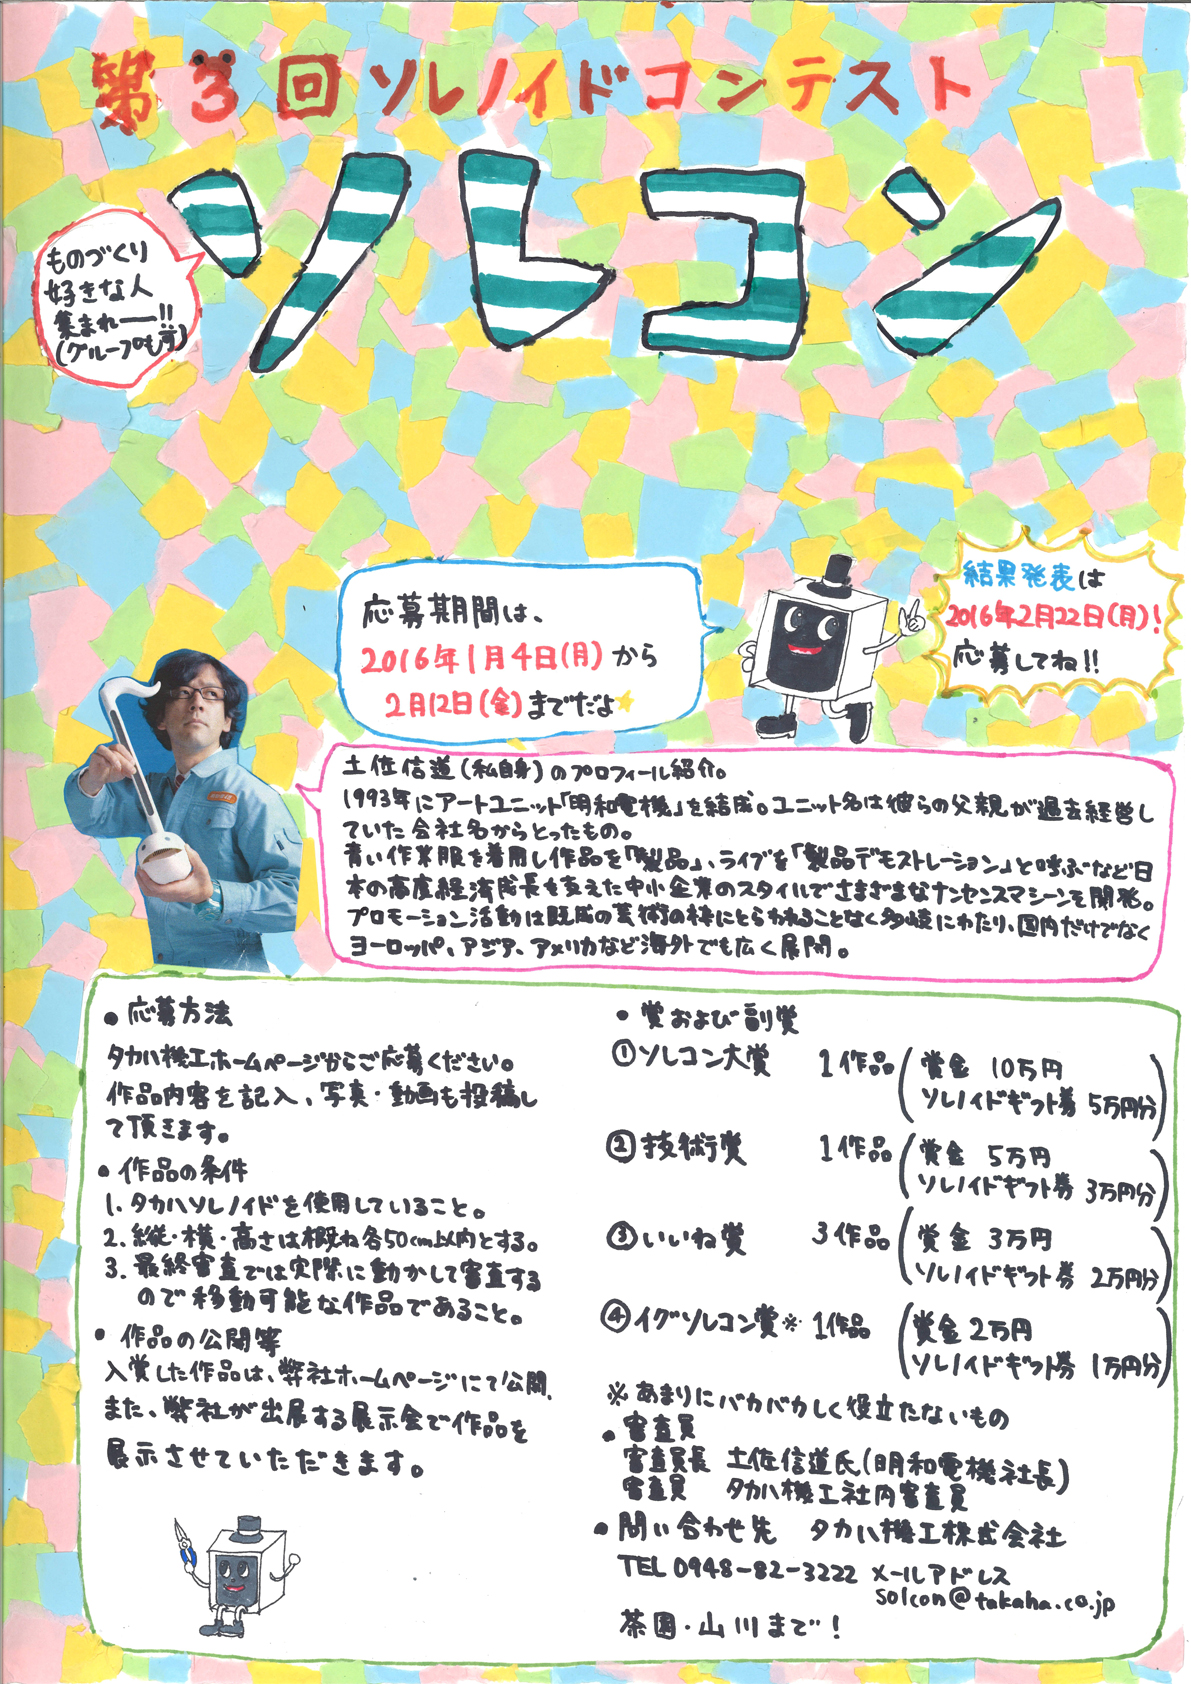 第3回ソレノイドコンテスト
ソレコン
ものづくり
好きな人
集まれー!!
(グループも可)
応募期間は、
2016年1月4日(月)から
2月12日(金)までだよ
結果発表は
2016年2月22日(月)!
応募してね!!
土佐信道(私自身)のプロフィール紹介。
1993年にアートユニット「明和電機」を結成。ユニット名は彼らの父親が過去経営し
ていた会社名からとったもの。
青い作業服を着用し作品を「製品」、ライブを「製品デモストレーション」と呼ぶなど日
本の高度経済成長を支えた中小企業のスタイルでさまざまなナンセンスマシーンを開発。
プロモーション活動は既成の芸術の枠にとらわれることなく多岐にわたり、国内だけでなく
ヨーロッパ、アジア、アメリカなど海外でも広く展開。
●応募方法
タカハ機工ホームページからご応募ください。
作品内容を記入、写真・動画も投稿し
て頂きます。
●作品の条件
1.タカハソレノイドを使用していること。
2.縦・横・高さは概ね各50cm以内とする。
3.最終審査では実際に動かして審査する
ので移動可能な作品であること。
●作品の公開等
入賞した作品は、弊社ホームページにて公開.
また、弊社が出展する展示会で作品を
展示させていただきます。
●賞および副賞
①ソレコン大賞 1作品(賞金 10万円
ソレノイドギフト券 5万円分)
②技術賞 1作品(賞金 5万円
ソレノイドギフト券 3万円分)
③いいね賞 3作品(賞金 3万円
ソレノイドギフト券 2万円分)
④イグソレコン賞※ 1作品(賞金2万円
ソレノイドギフト券 1万円分)
※あまりにバカバカしく役立たないもの
●審査員
審査員長 土佐信道氏(明和電機社長)
審査員 タカハ機工社内審査員
●問い合わせ先 タカハ機工株式会社
TEL 0948-82-3222 メールアドレス
solcon@takaha.co.jp
茶園・山川まで!